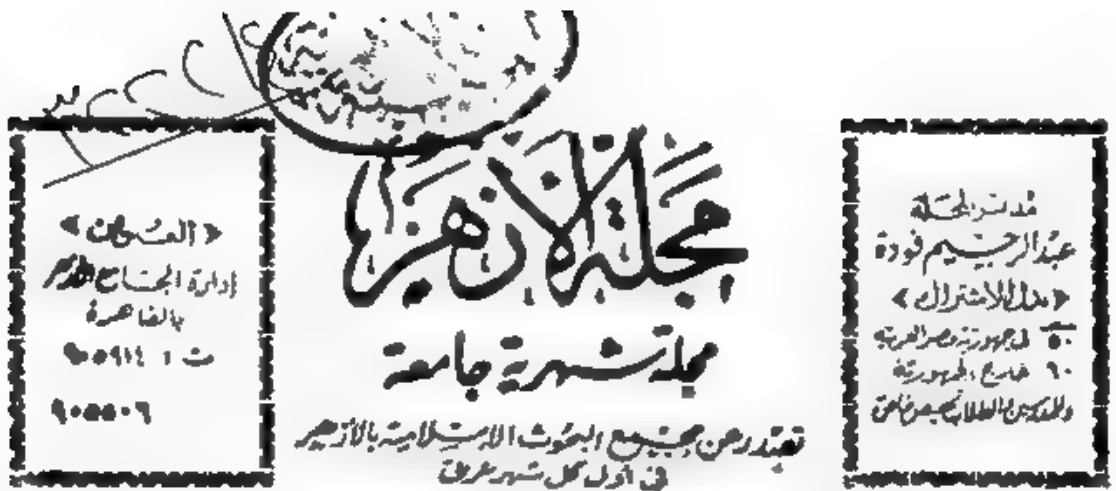 مدير المجلة
عبد الرحيم فودة
« بدل الاشتراك »
٥٠ في جمهورية مصر العربية
٦٠ خارج الجمهورية
وللمدرسين والطلاب تخفيض خاص
مجلة الأزهر
مجلة شهرية جامعة
تصدر عن مجمع البحوث الإسلامية بالأزهر
في أول كل شهر عربي
« العنوان »
إدارة الجامع الأزهر
بالقاهرة
ت : ٩٠٥٩١٤
٩٠٥٥٠٦